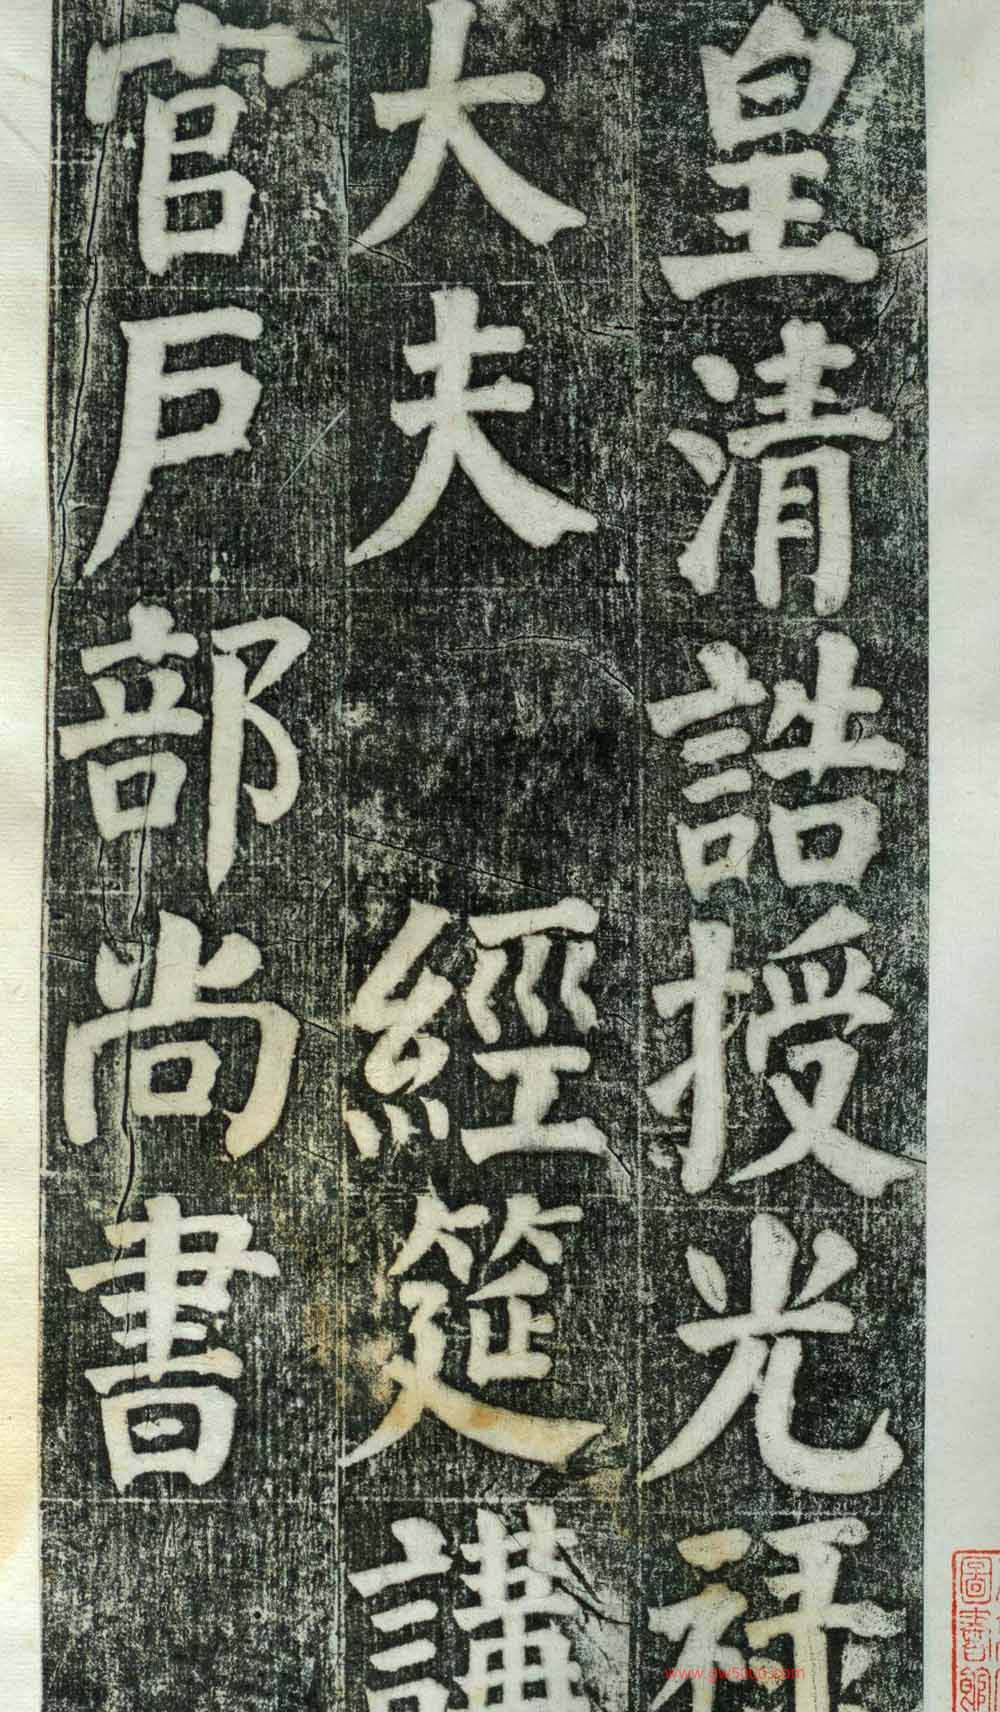 皇清誥授光祿
大夫 經筵講
官戸部尚書
圖書館
www.gw5000.com